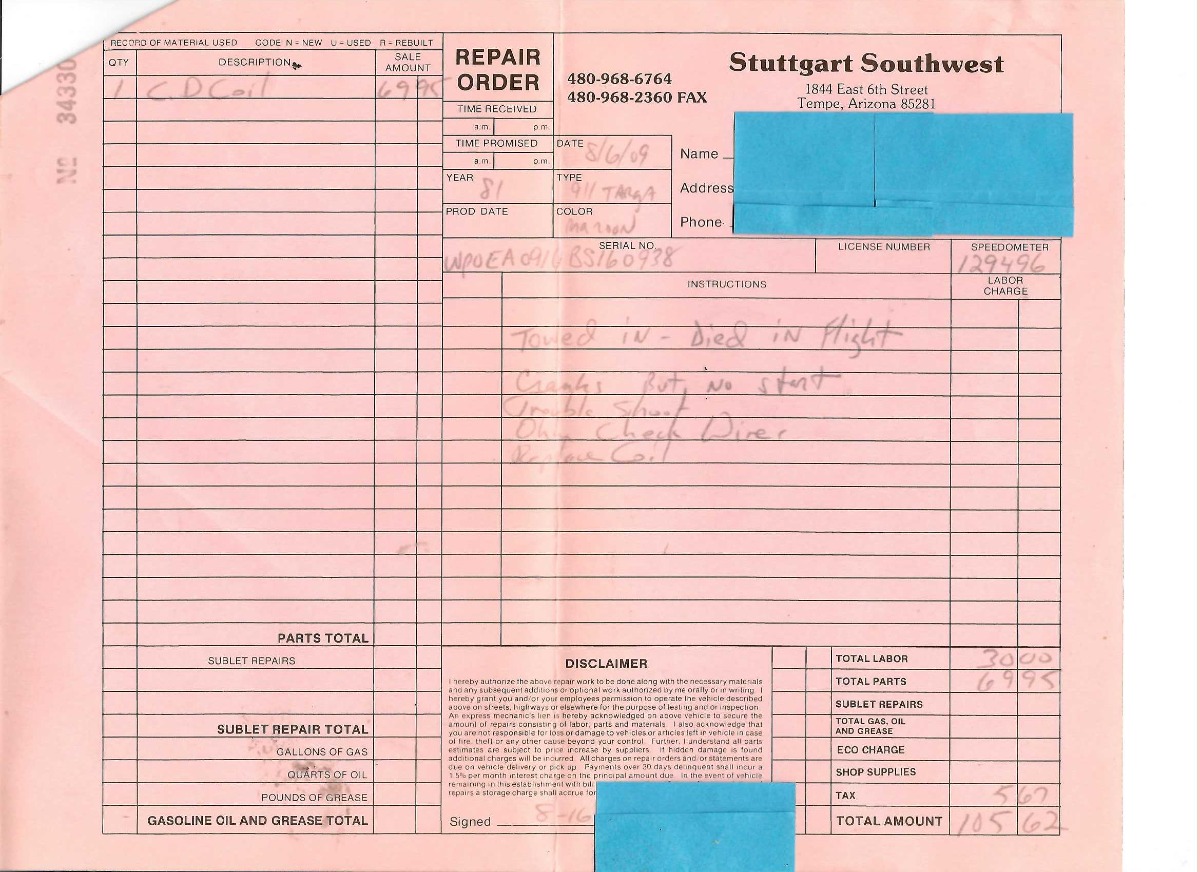 RECORD OF MATERIAL USED CODE N = NEW U = USED R = REBUILT
QTY DESCRIPTION SALE AMOUNT
1 C.D Coil 69 95
No 34330
REPAIR ORDER
TIME RECEIVED
a.m. p.m.
TIME PROMISED
a.m. p.m.
480-968-6764
480-968-2360 FAX
Stuttgart Southwest
1844 East 6th Street
Tempe, Arizona 85281
DATE 8/6/09
YEAR 81
TYPE 911 TARGA
PROD DATE
COLOR MAROON
Name
Address
Phone
SERIAL NO. WP0EA0916BS160938
LICENSE NUMBER
SPEEDOMETER 129496
INSTRUCTIONS
LABOR CHARGE
Towed in - Died in Flight
Cranks But No start
Trouble Shoot
Ohm Check Wires
Replace Coil
PARTS TOTAL
SUBLET REPAIRS
SUBLET REPAIR TOTAL
GALLONS OF GAS
QUARTS OF OIL
POUNDS OF GREASE
GASOLINE OIL AND GREASE TOTAL
DISCLAIMER
I hereby authorize the above repair work to be done along with the necessary materials
and any subsequent additions or optional work authorized by me orally or in writing. I
hereby grant you and/or your employees permission to operate the vehicle described
above on streets, highways or elsewhere for the purpose of testing and/or inspection.
An express mechanic's lien is hereby acknowledged on above vehicle to secure the
amount of repairs consisting of labor, parts and materials. I also acknowledge that
you are not responsible for loss or damage to vehicles or articles left in vehicle in case
of fire, theft or any other cause beyond your control. Further, I understand all parts
estimates are subject to price increase by suppliers. If hidden damage is found
additional charges will be incurred. All charges on repair orders and/or statements are
due on vehicle delivery or pick up. Payments over 30 days delinquent shall incur a
1.5% per month interest charge on the principal amount due. In the event of vehicle
remaining in this establishment with
repairs a storage charge shall accrue for
Signed 8-16
TOTAL LABOR 30 00
TOTAL PARTS 69 95
SUBLET REPAIRS
TOTAL GAS, OIL AND GREASE
ECO CHARGE
SHOP SUPPLIES
TAX 5 67
TOTAL AMOUNT 105 62